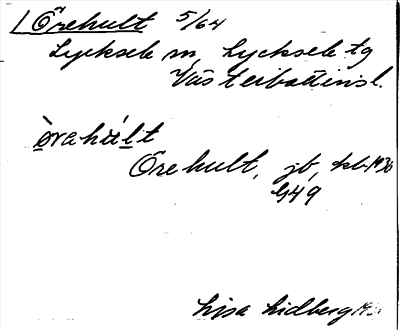 Örehult 5/64
Lycksele sn, Lycksele tg
Västerbottensl.
òrahúlt
Örehult, jb, kb 1930
G49
Lisa Lidberg